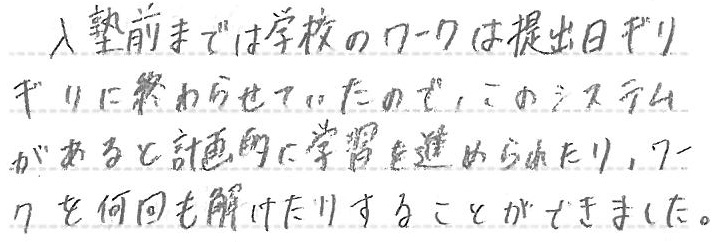 入塾前までは学校のワークは提出日ギリ
ギリに終わらせていたので、このシステム
があると計画的に学習を進められたり、ワー
クを何回も解けたりすることができました。